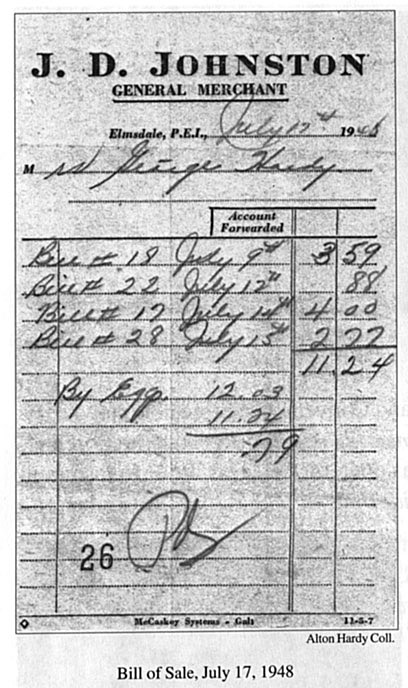 J. D. JOHNSTON
GENERAL MERCHANT
Elmsdale, P.E.I., July 17th 1948
Mrs George Hardy
Account
Forwarded
Bill # 18 July 9th 3 59
Bill # 22 July 12th 88
Bill # 17 July 14th 4 00
Bill # 28 July 15th 2 77
11.24
By Egg. 12.03
11.24
.79
26 Pd
McCaskey Systems - Galt 11-5-7
Alton Hardy Coll.
Bill of Sale, July 17, 1948